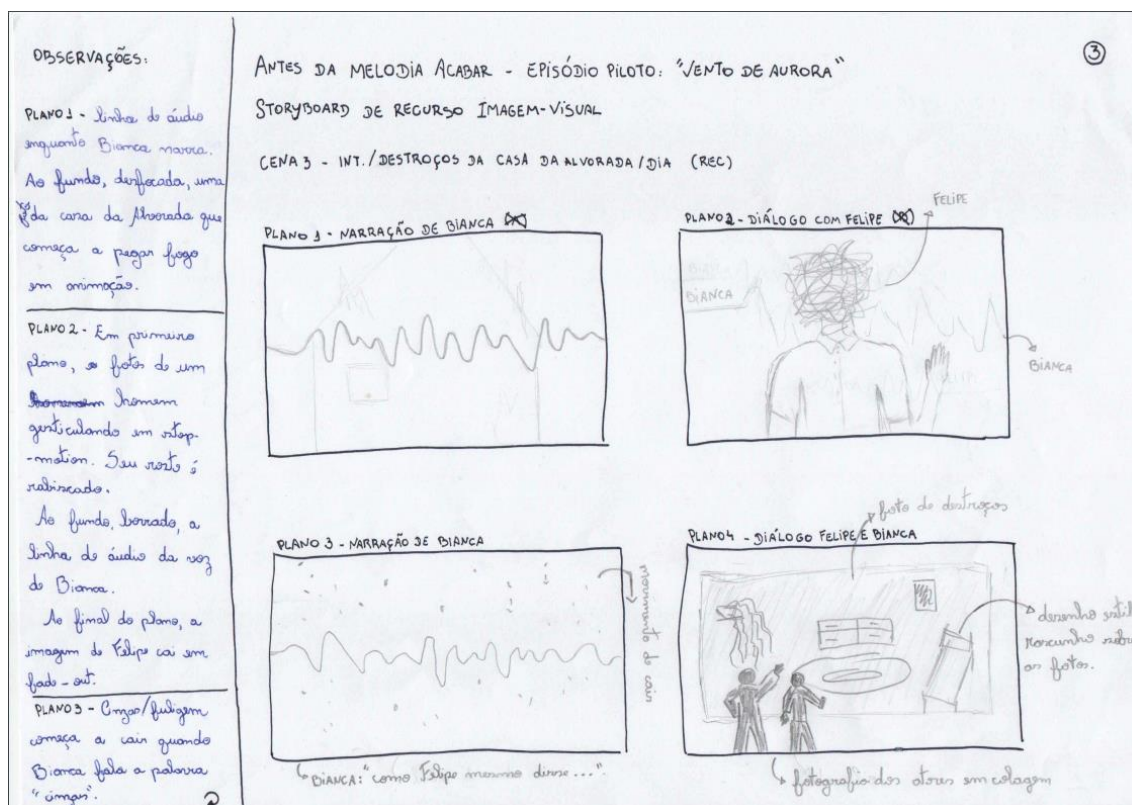 OBSERVAÇÕES:
PLANO 1 - linha de áudio
enquanto Bianca narra.
Ao fundo, desfocada, uma
da casa da Alvorada que
começa a pegar fogo
em animação.
PLANO 2 - Em primeiro
plano, fotos de um
homem
gesticulando em stop-
-motion. Seu rosto é
rabiscado.
Ao fundo, borrado, a
linha de áudio da voz
de Bianca.
Ao final do plano, a
imagem de Felipe cai em
fade-out.
PLANO 3 - Cinzas/fuligem
começa a cair quando
Bianca fala a palavra
"cinzas".
3
ANTES DA MELODIA ACABAR - EPISÓDIO PILOTO: "VENTO DE AURORA"
STORYBOARD DE RECURSO IMAGEM-VISUAL
CENA 3 - INT./DESTROÇOS DA CASA DA ALVORADA/DIA (REC)
PLANO 1 - NARRAÇÃO DE BIANCA
PLANO 2 - DIÁLOGO COM FELIPE
FELIPE
BIANCA
BIANCA
PLANO 3 - NARRAÇÃO DE BIANCA
movimento de cair
BIANCA: "como Felipe mesmo disse..."
foto de destroços
PLANO 4 - DIÁLOGO FELIPE E BIANCA
desenho estil
rascunho sobre
as fotos.
fotografia dos atores em colagem